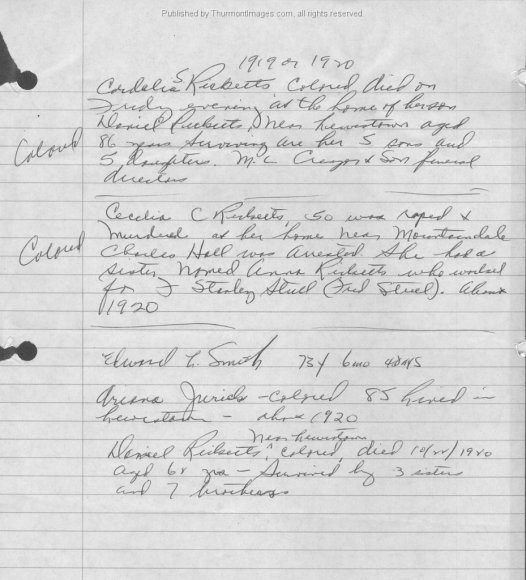 Published by ThurmontImages.com, all rights reserved.
1919 or 1920
Cordelia S Ricketts Colored died on
Friday evening at the home of her son
Daniel Ricketts, Near Lewistown aged
86 years Surviving are her 5 sons and
5 daughters. M. L. Creager & Son funeral
directors
Colored
Cecelia C Ricketts, 50 was raped &
Murdered at her home near Mountaindale
Charles Hall was arrested She had a
sister Named Anna Ricketts who worked
for J Stanley Stull (Fred Stull). About
1920
Colored
Edward L. Smith 73 y 6 mo 4 days
Ariana - Colored 85 lived in
Lewistown - about 1920
Near Lewistown
Daniel Ricketts, colored, died 10/22/1920
aged 68 yrs - Survived by 3 sisters
and 7 brothers